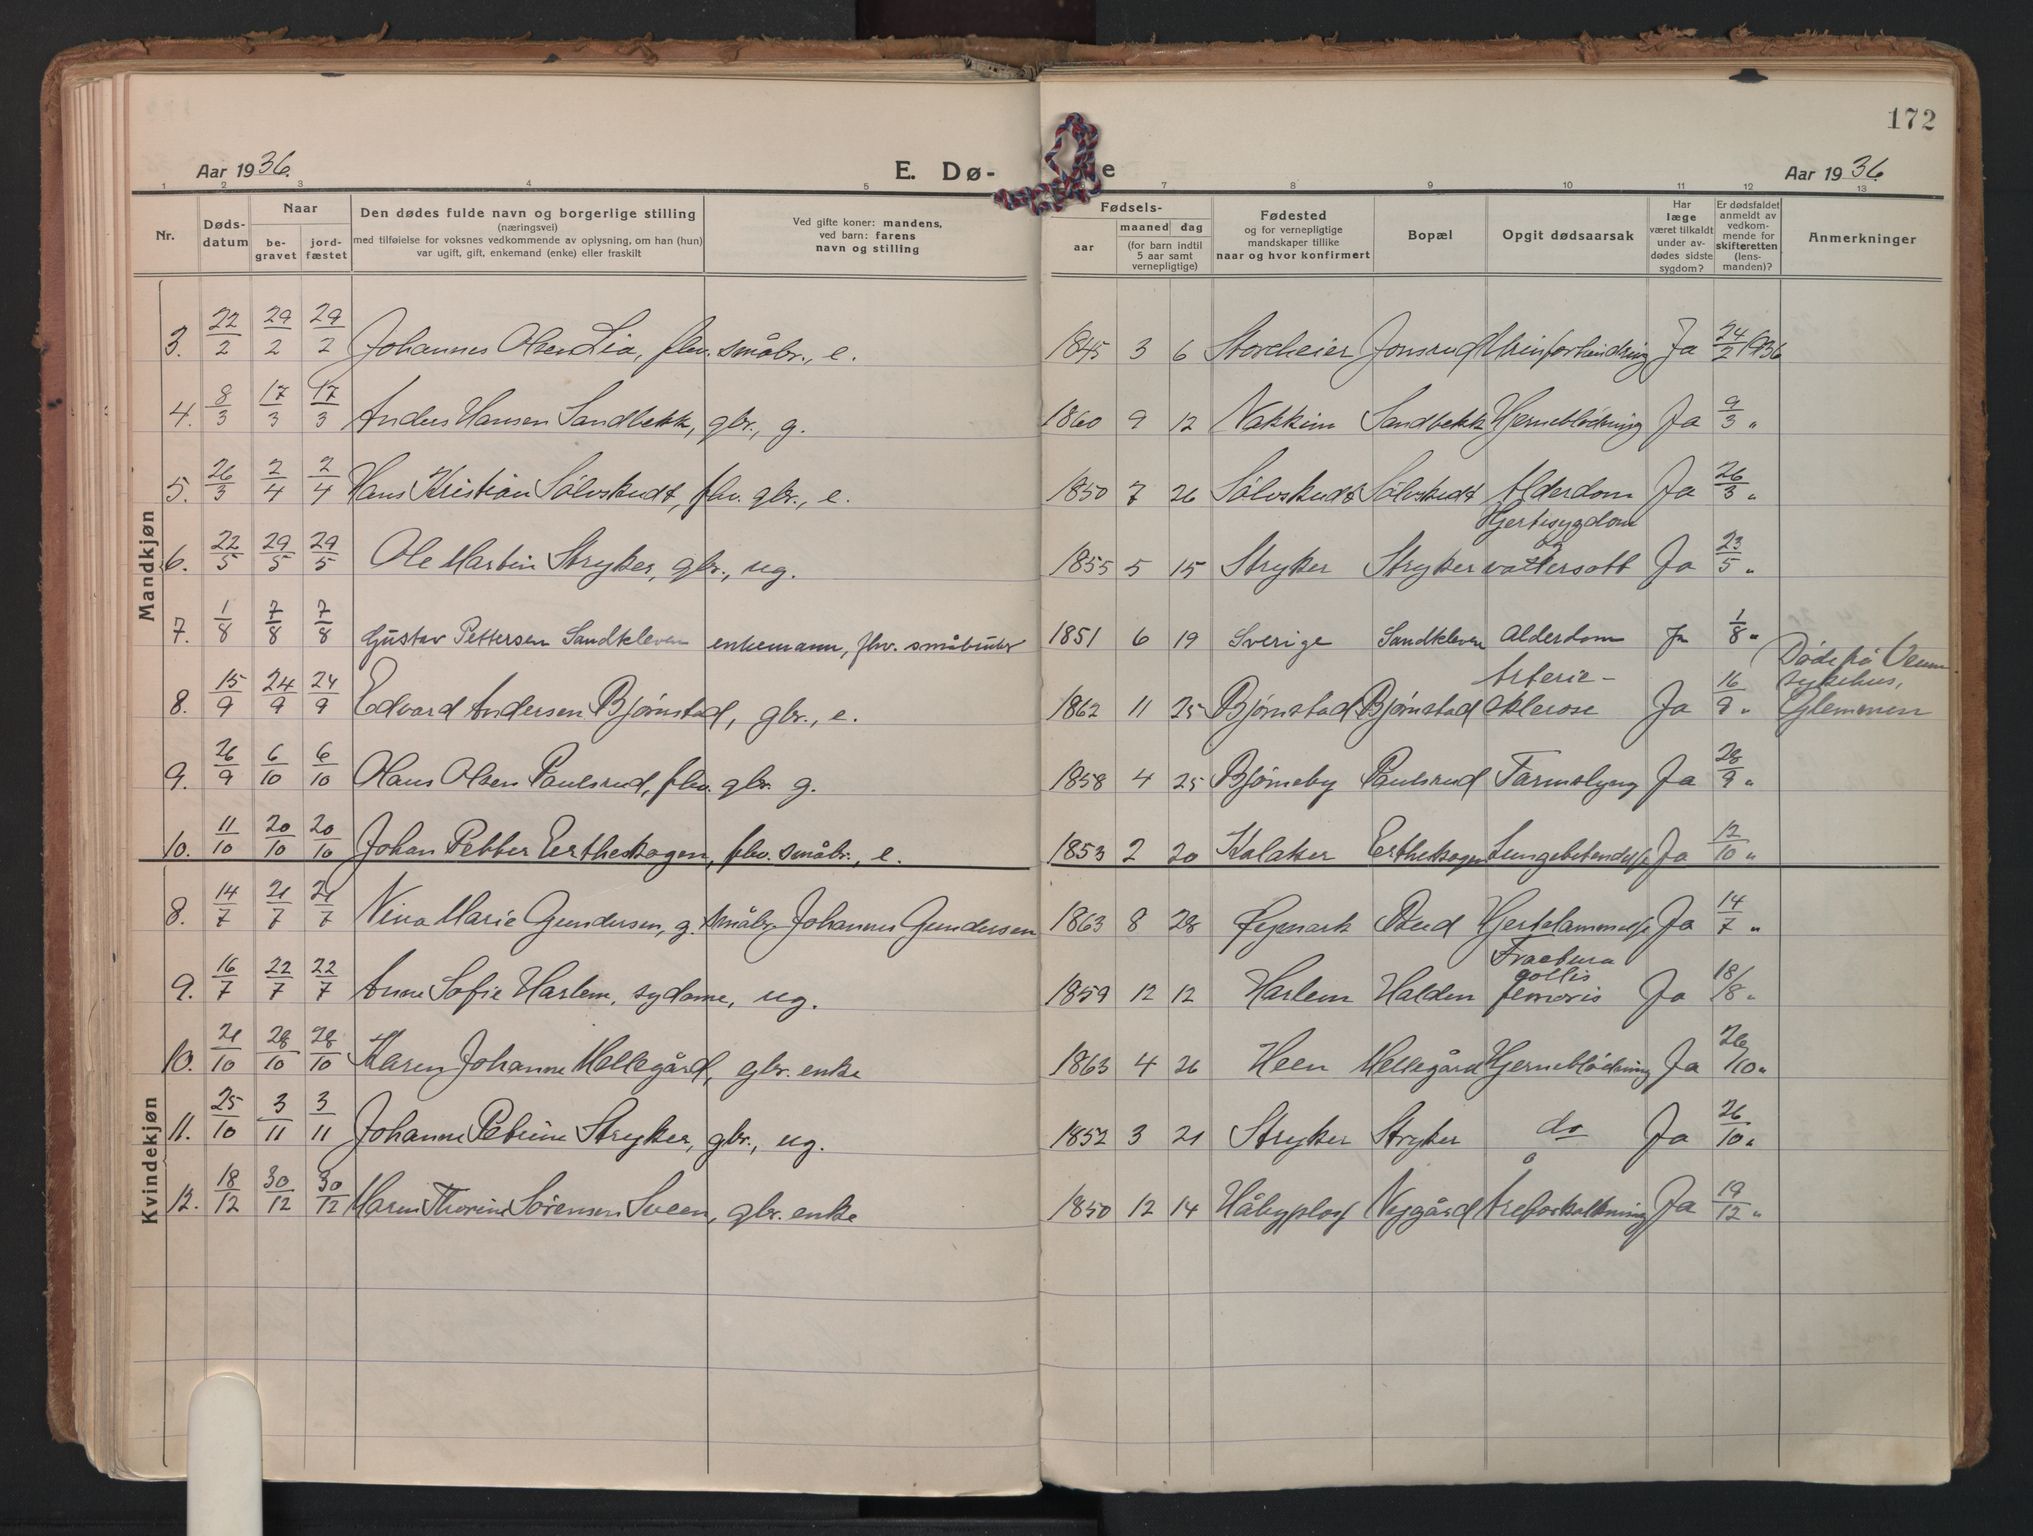 172
Aar 1936. E. Dø- e Aar 1936.
1 2 3 4 5 7 8 9 10 11 12 13
Nr. Døds-datum Naar be-gravet jord-fæstet Den dødes fulde navn og borgerlige stilling (næringsvei) med tilføielse for voksnes vedkommende av oplysning, om han (hun) var ugift, gift, enkemand (enke) eller fraskilt Ved gifte koner: mandens, ved barn: farens navn og stilling Fødsels- aar maaned dag (for barn indtil 5 aar samt vernepligtige) Fødested og for vernepligtige mandskaper tillike naar og hvor konfirmert Bopæl Opgit dødsaarsak Har læge været tilkaldt under av-dødes sidste sygdom? Er dødsfaldet anmeldt av vedkom-mende for skifteretten (lens-manden)? Anmerkninger
Mandkjøn
3. 22/2 29/2 29/2 Johannes Olsen Lia, fhv. småbr., e. 1845 3 6 Storeheier Jonsrud Urinforhindring Ja 24/2 1936
4. 8/3 17/3 17/3 Anders Hansen Sandbekk, gbr., g. 1860 9 12 Nakkim Sandbekk Hjerneblødning Ja 9/3 "
5. 26/3 2/4 2/4 Hans Kristian Sølvskudt, fhv. gbr., e. 1850 7 26 Sølvskudt Sølvskudt Alderdom Ja 26/3 "
6. 22/5 29/5 29/5 Ole Martin Stryker, gbr., ug. 1855 5 15 Stryker Stryker Hjertesygdom og vattersott Ja 23/5 "
7. 1/8 7/8 7/8 Gustav Pettersen Sandkleven enkemann, fhv. småbruker 1851 6 19 Sverige Sandkleven Alderdom Ja 1/8 "
8. 15/9 24/9 24/9 Edvard Andersen Bjørnstad, gbr., e. 1862 11 25 Bjørnstad Bjørnstad Arterie-sklerose Ja 16/9 " Døde på Veum sykehus, Glemmen
9. 26/9 6/10 6/10 Hans Olsen Paulsrud, fhv. gbr. g. 1858 4 25 Bjørneby Paulsrud Tarmslyng Ja 28/9 "
10. 11/10 20/10 20/10 Johan Petter Ertheskogen, fhv. småbr., e. 1853 2 20 Kolaker Ertheskogen Lungebetendelse Ja 12/10 "
Kvindekjøn
8. 14/7 21/7 21/7 Nina Marie Gundersen, g. småbr. Johannes Gundersen 1863 8 28 Øymark Rud Hjertelammelse Ja 14/7 "
9. 16/7 22/7 22/7 Anne Sofie Harlem, sydame, ug. 1859 12 12 Harlem Halden Fractura collis femoris Ja 18/8 "
10. 21/10 28/10 28/10 Karen Johanne Mellegård, gbr. enke 1863 4 26 Heen Mellegård Hjerneblødning Ja 26/10 "
11. 25/10 3/11 3/11 Johanne Petrine Stryker, gbr., ug. 1852 3 21 Stryker Stryker do Ja 26/10 "
12. 18/12 30/12 30/12 Maren Thorine Sørensen Sveen, gbr. enke 1850 12 14 Håbyplass Nygård Åreforkalkning Ja 19/12 "